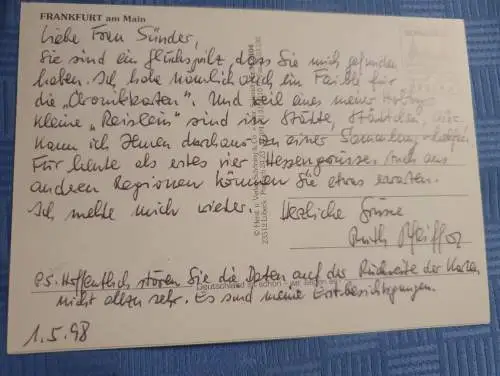 FRANKFURT am Main
Liebe Frau Sünder,
Sie sind ein Glückspilz, dass Sie mich gefunden
haben. Ich habe nämlich auch ein Faible für
die „Chronikkarten". Und weil eines meiner Hobbys
kleine „Reislein" sind in Städte, Städtchen
kann ich Ihnen durchaus zu einer Sammlung
Für heute als erstes vier Hessengrüsse. Auch aus
anderen Regionen können Sie etwas erwarten.
Ich melde mich wieder. Herzliche Grüsse
Ruth Pfeiffer
P.S. Hoffentlich stören Sie die Daten auf der Rückseite der Karten
nicht allzu sehr. Es sind meine Erstbesichtigungen.
Deutschland ist schön - wir zeigen es!
1.5.98